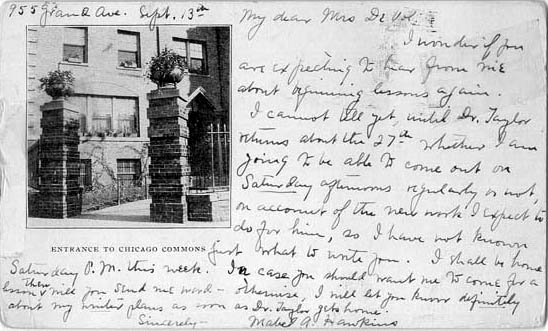 955 Grand Ave. Sept. 13th
My dear Mrs De
I wonder if you
are expecting to hear from me
about beginning lessons again.
I cannot tell yet, until Dr. Taylor
returns about the 27th whether I am
going to be able to come out on
Saturday afternoons regularly or not,
on account of the new work I expect to
do for him, so I have not known
just what to write you. I shall be home
ENTRANCE TO CHICAGO COMMONS
Saturday P.M. this week. In case you should want me to come for a
lesson then will you send me word – otherwise, I will let you know definitely
about my winter plans as soon as Dr. Taylor gets home.
Sincerely – Mabel A. Hawkins